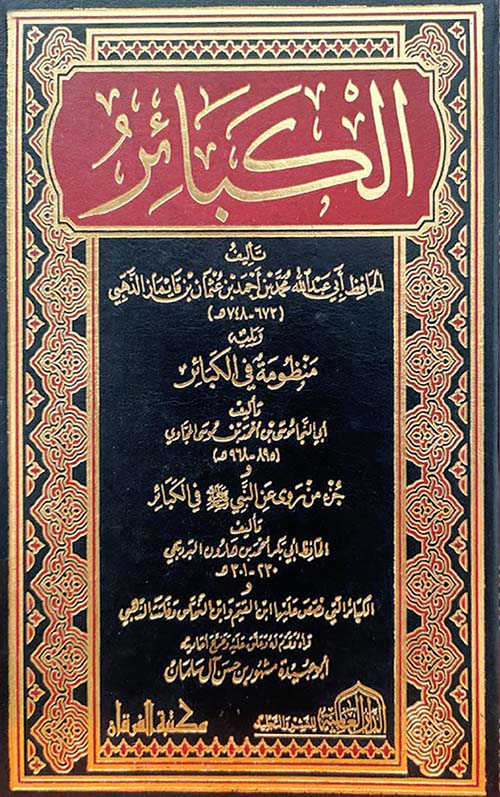 الكبائر
تأليف
الحافظ أبي عبد الله محمد بن أحمد بن عثمان بن قايماز الذهبي
(٦٧٣-٧٤٨هـ)
ويليه
منظومة في الكبائر
تأليف
أبي النجا موسى بن أحمد بن موسى الحجاوي
(٨٩٥-٩٦٨هـ)
و
جزء من روى عن النبي ﷺ في الكبائر
تأليف
الحافظ أبي بكر أحمد بن هارون البرديجي
٢٣٠-٣٠١هـ
و
الكبائر التي نصص عليها ابن القيم وابن النحاس وفاتت الذهبي
قدم له وعلق عليه وخرج أحاديثه
أبو عبيدة مشهور بن حسن آل سلمان
الدار العثمانية للنشر والتوزيع
مكتبة الفرقان